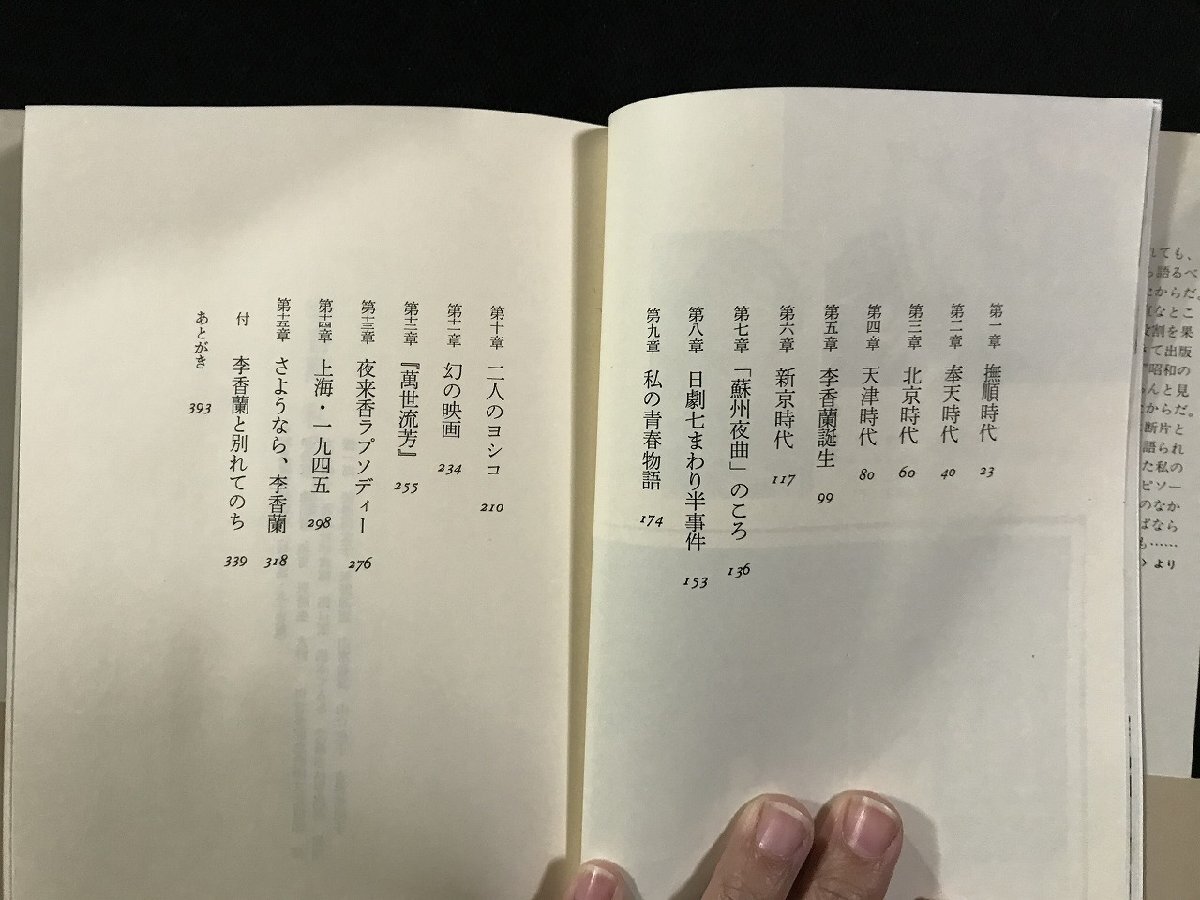 第一章 撫順時代 23
第二章 奉天時代 40
第三章 北京時代 60
第四章 天津時代 80
第五章 李香蘭誕生 99
第六章 新京時代 117
第七章 「蘇州夜曲」のころ 136
第八章 日劇七まわり半事件 153
第九章 私の青春物語 174
第十章 二人のヨシコ 210
第十一章 幻の映画 234
第十二章 『萬世流芳』 255
第十三章 夜来香ラプソディー 276
第十四章 上海・一九四五 298
第十五章 さようなら、李香蘭 318
付 李香蘭と別れてのち 339
あとがき 393
れても、
語るべ
からだ。
なとこ
割を果
て出版
昭和の
んと見
からだ。
断片と
語られ
た私の
ピソー
のなか
ばなら
も……
より